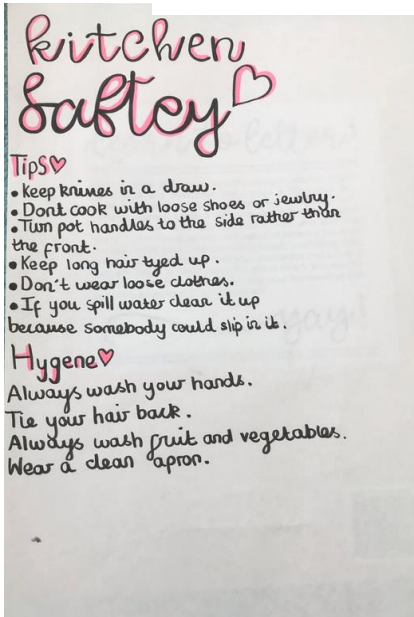 kitchen
Saftey
Tips
• Keep knives in a draw.
• Dont cook with loose shoes or jewlry.
• Turn pot handles to the side rather than
the front.
• Keep long hair tyed up.
• Don't wear loose clothes.
• If you spill water clean it up
because somebody could slip in it.
Hygene
Always wash your hands.
Tie your hair back.
Always wash fruit and vegetables.
Wear a clean apron.